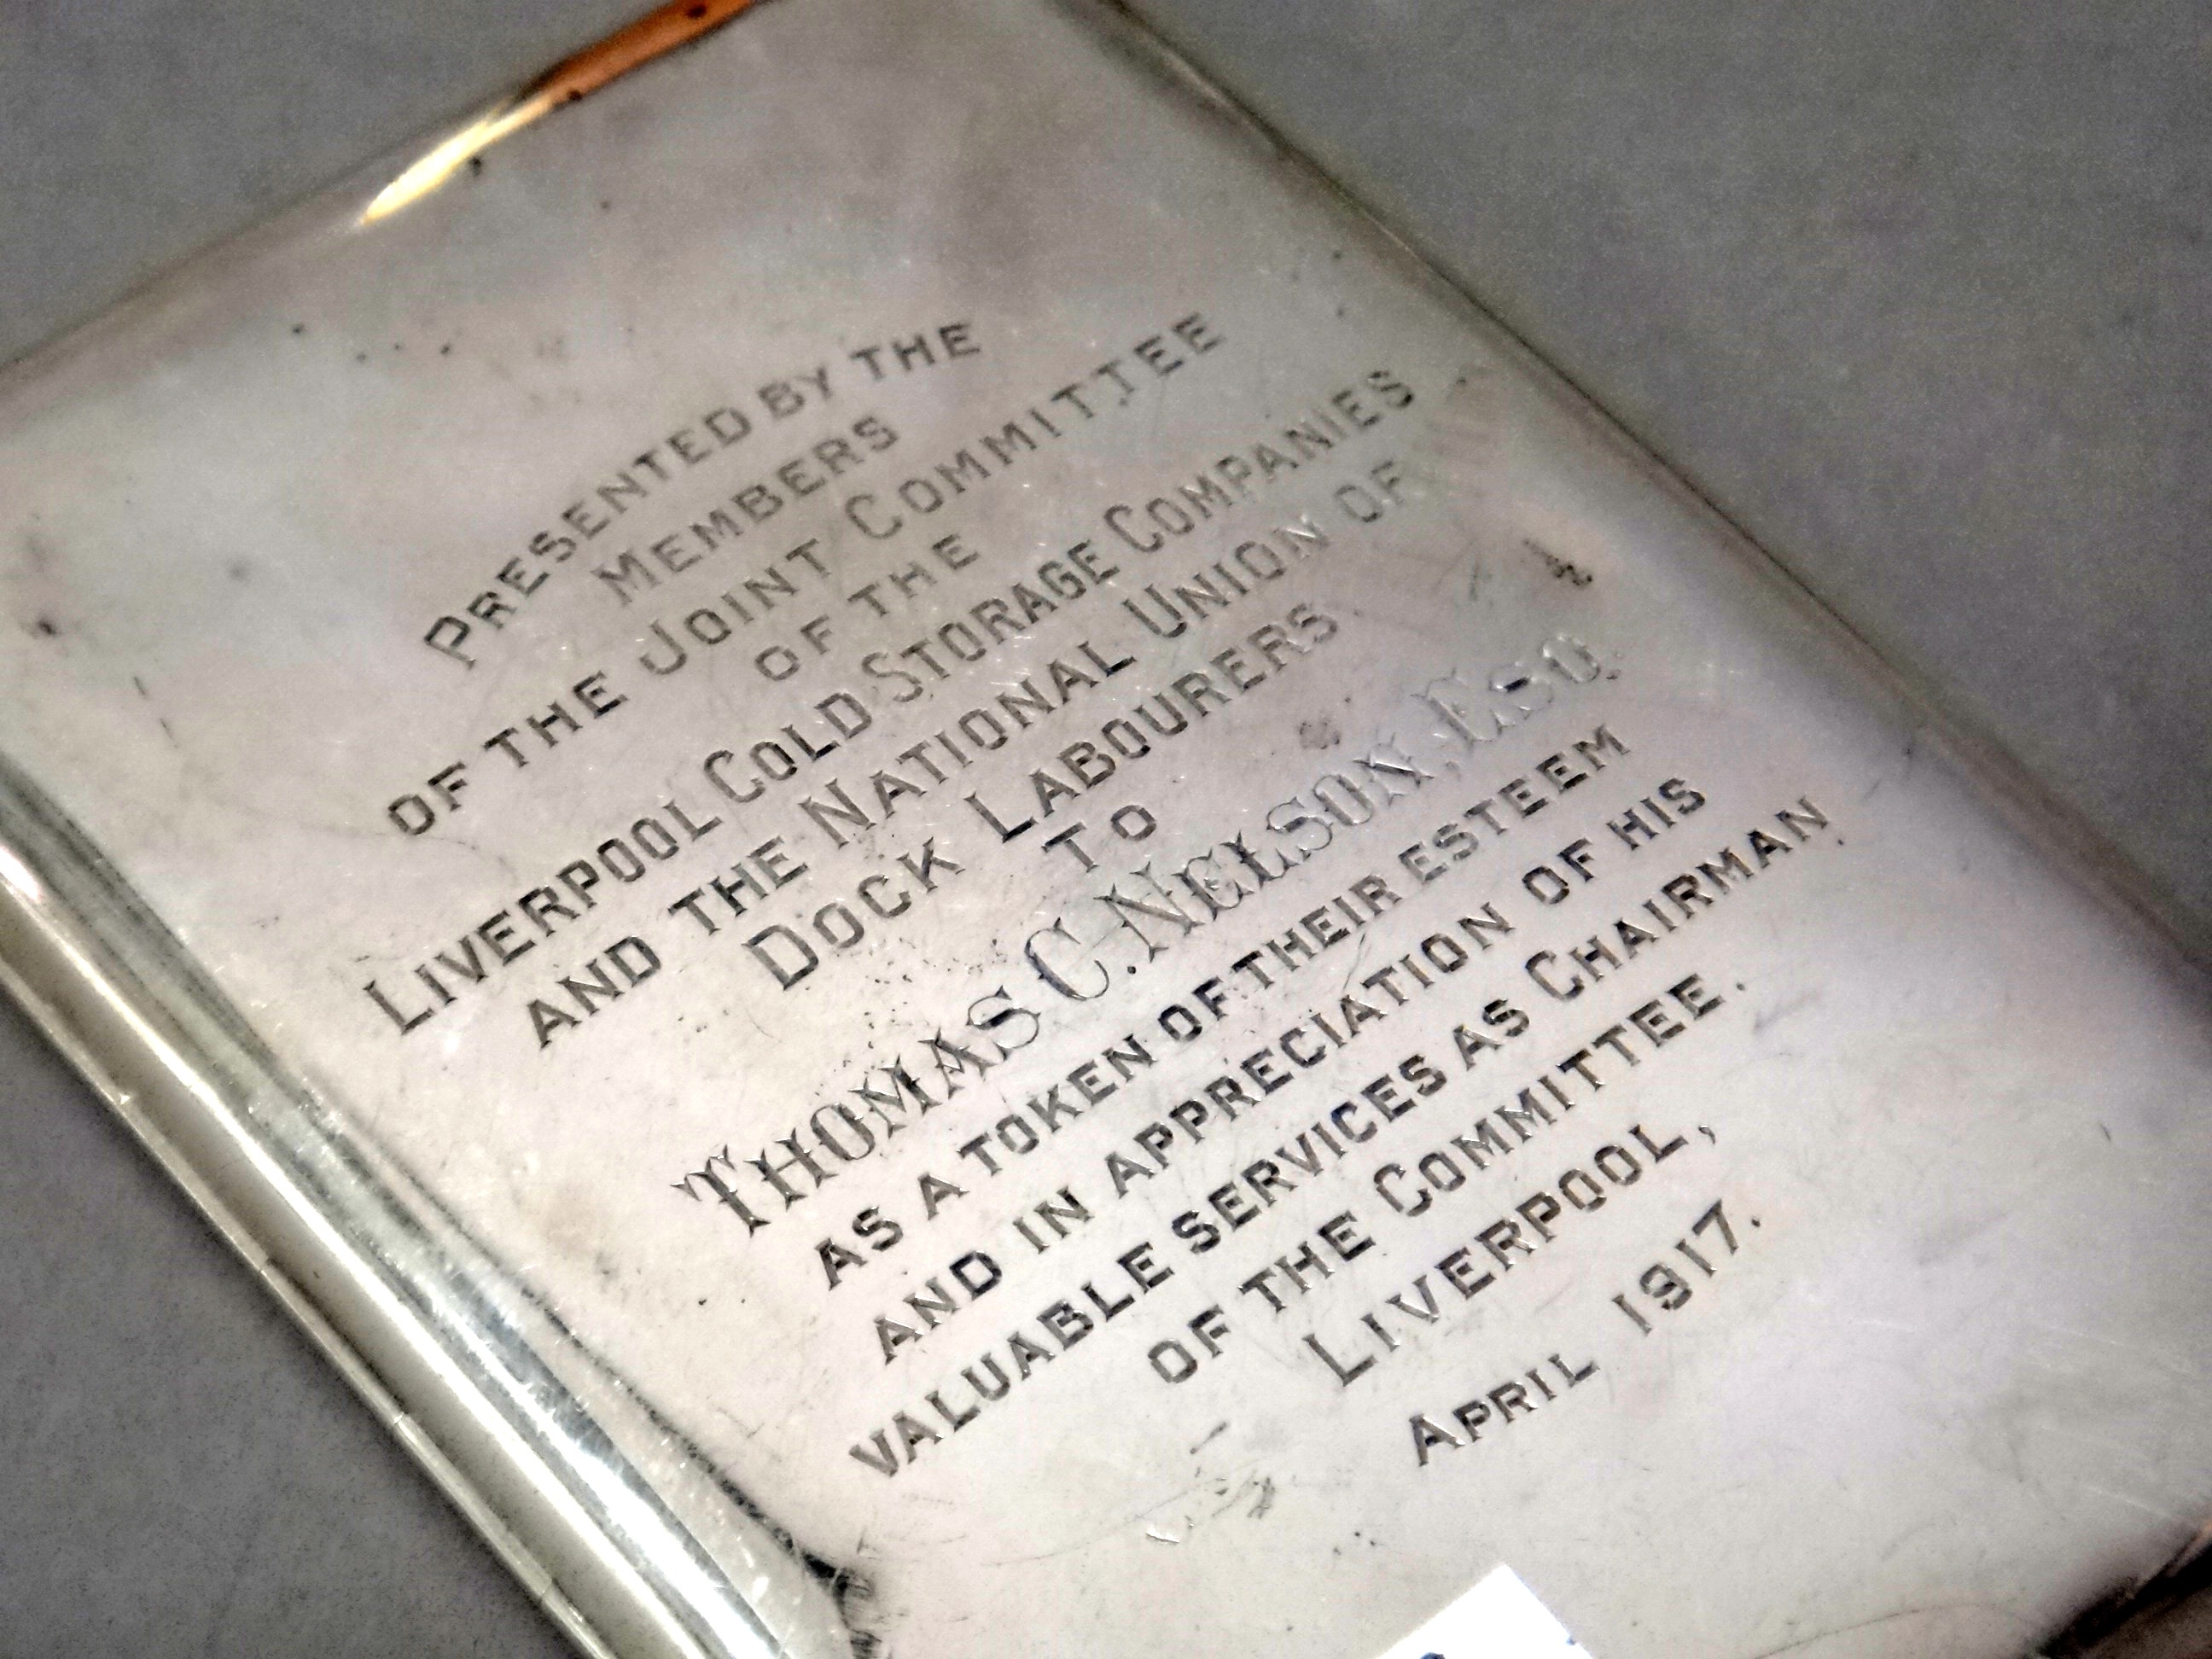 PRESENTED BY THE
MEMBERS
OF THE JOINT COMMITTEE
OF THE
LIVERPOOL COLD STORAGE COMPANIES
AND THE NATIONAL UNION OF
DOCK LABOURERS.
TO
THOMAS C. NELSON, ESQ.
AS A TOKEN OF THEIR ESTEEM
AND IN APPRECIATION OF HIS
VALUABLE SERVICES AS CHAIRMAN
OF THE COMMITTEE.
LIVERPOOL,
APRIL 1917.